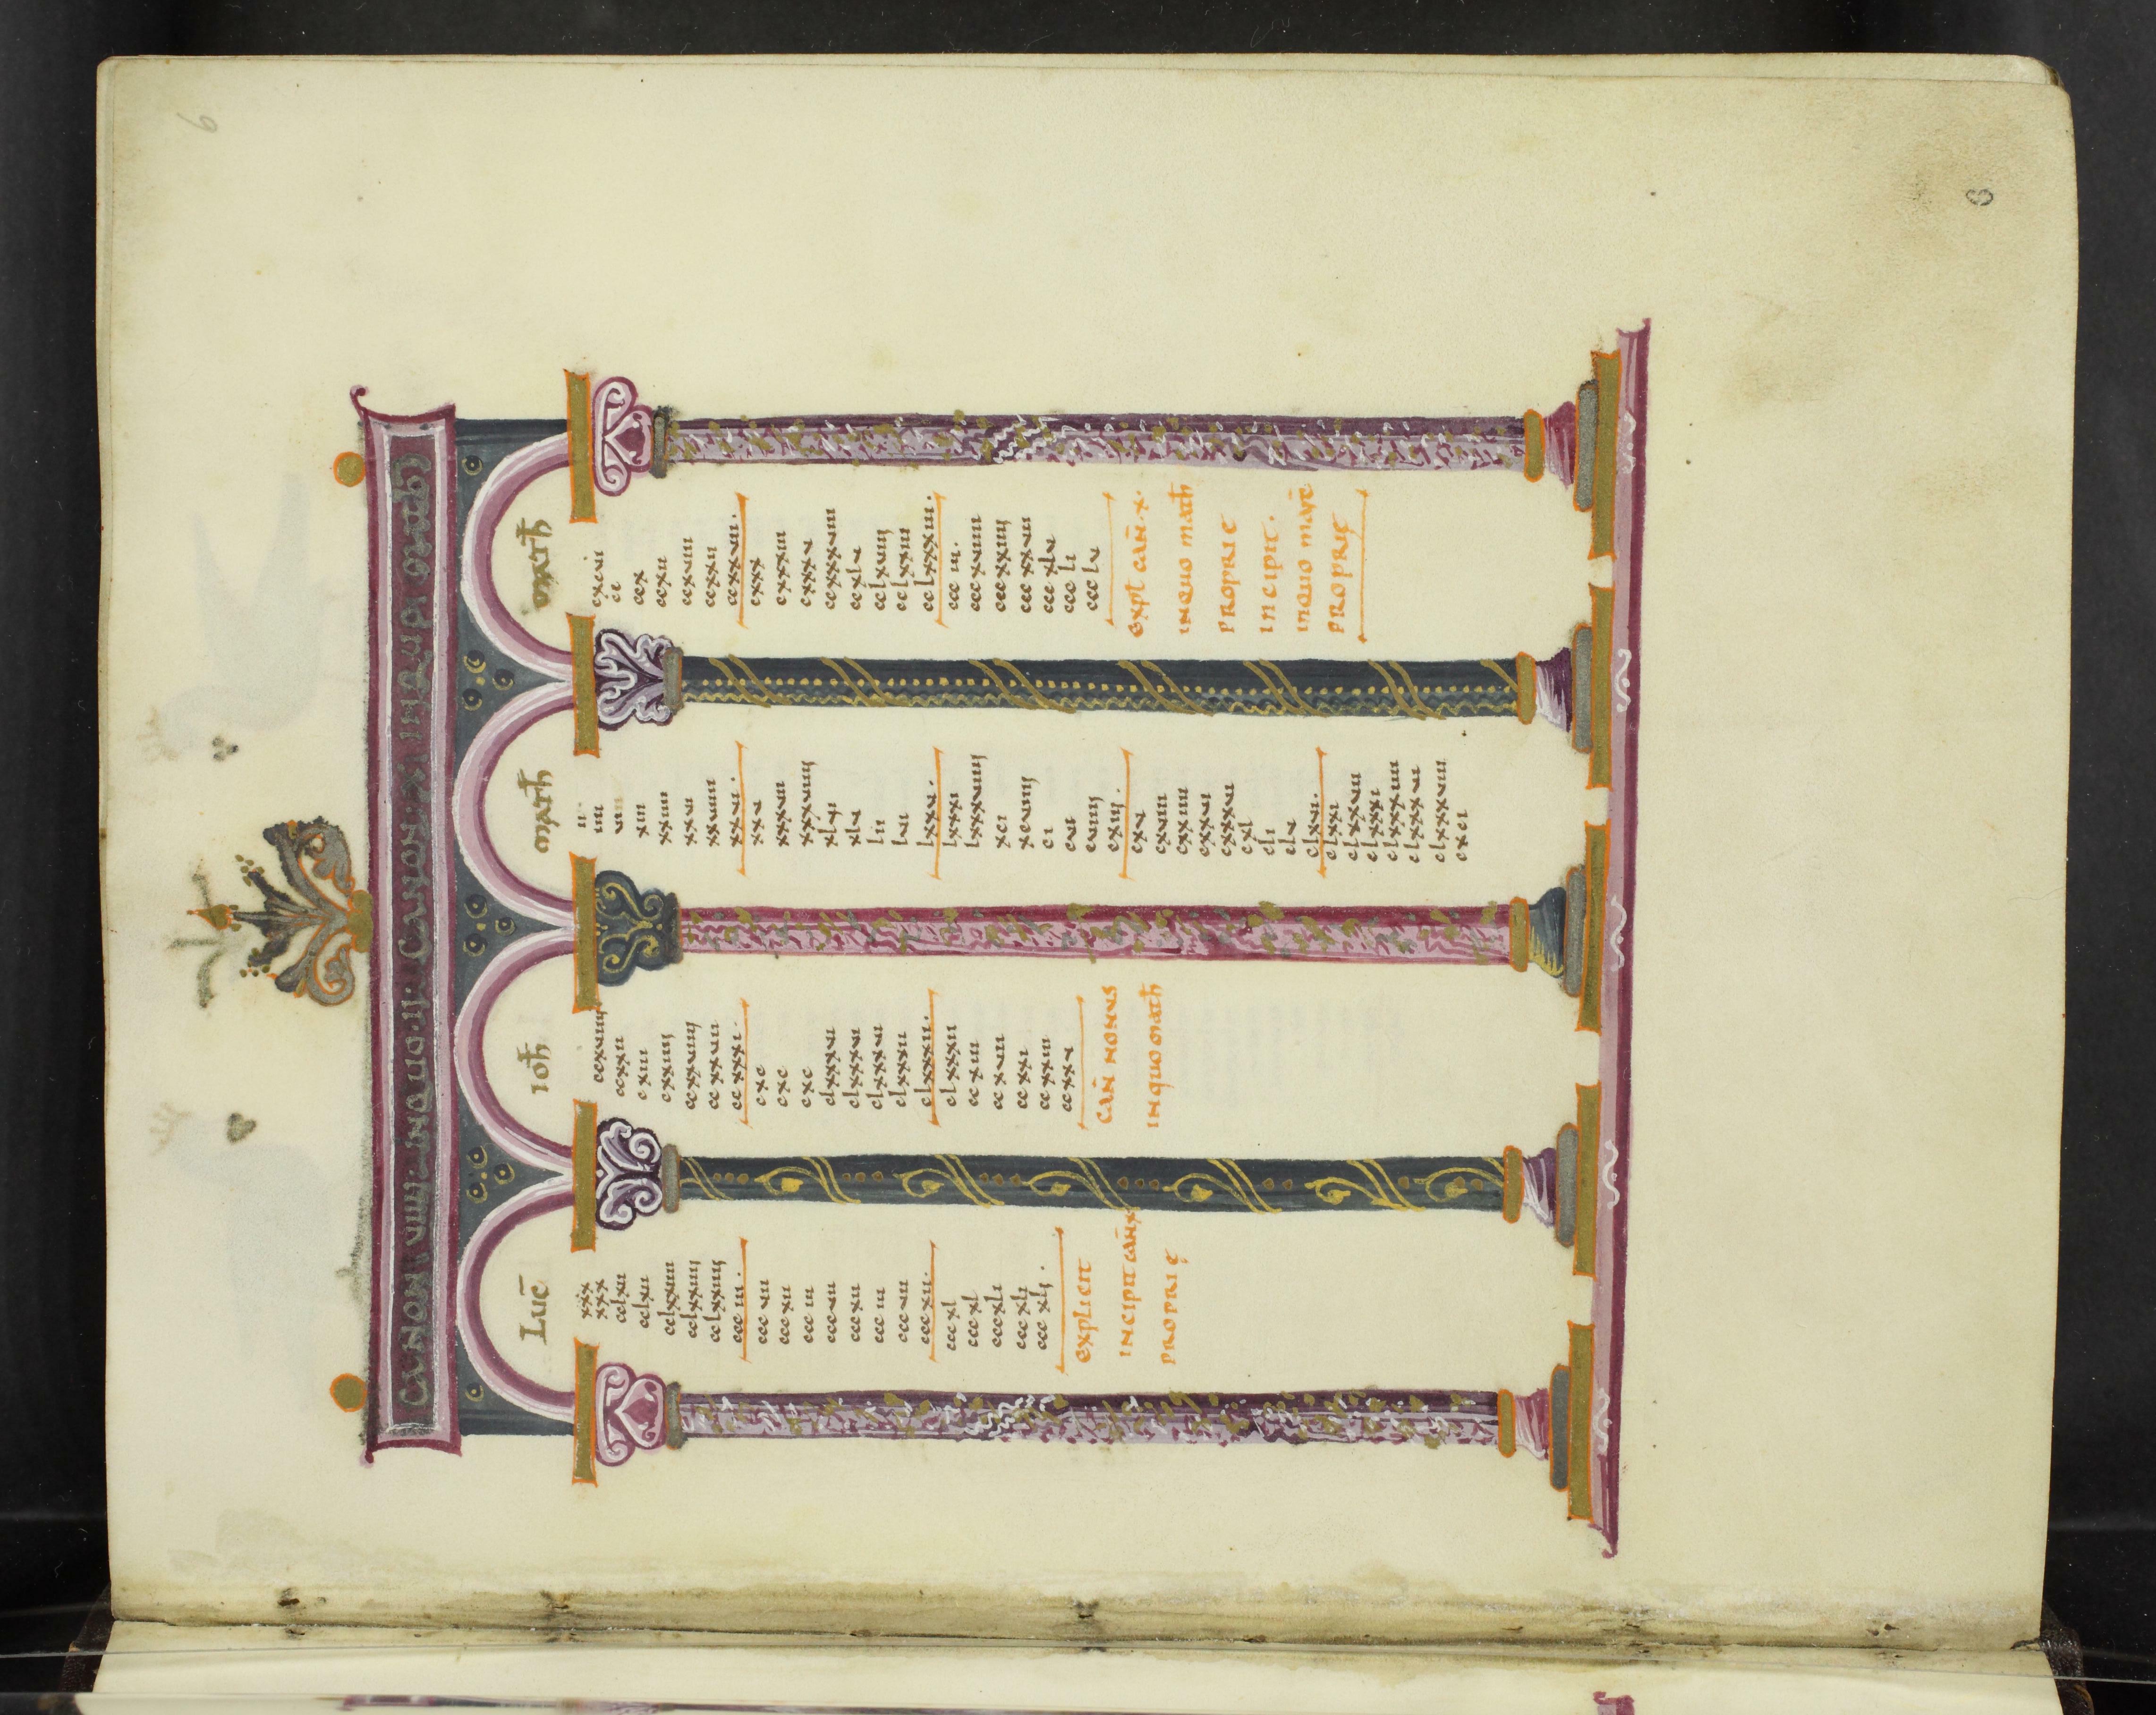 CANON VIIII INQUO II CANON XI INQUO
Luc̄
xxx
xxx
cclxii
cclxii
cclxxiiii
cclxxiiij
cclxxiiij
ccc iii.
ccc vii
ccc xii
ccc iii
ccc vii
ccc xii
ccc iii
ccc vii
ccc xii.
ccc xl
ccc xl
cccxli
ccc xli
ccc xlij.
explicit
incipit can̄ x
proprię
ioħ
ccxviiij
ccxxii
cxiii
cxxiiij
ccxxviiij
ccxxvii
cc xxxi.
cxc
cxc
cxc
clxxxvi
clxxxvi
clxxxvi
clxxxii
clxxxii.
clxxxii
ccxiii
ccxvii
ccxxi
ccxxiii
ccxxv
can̄ nonus
inquo matħ
matħ
ii
iiii
vii
xiii
xxiiii
xxvi
xxviiii
xxxvi.
xxxv
xxxvii
xxxviiij
xlii
xlv
lii
lvi
lxxv.
lxxxi
lxxxviiij
xci
xcviiij
ci
cvi
cviiij
cxiij.
cxv
cxviii
cxxiiii
cxxvi
cxxxvi
cxl
cli
clv
clxvii.
clxxi
clxxvii
clxxxi
clxxxiiii
clxxxvi
clxxxviii
cxci
matħ
cxcvi
cc
ccx
ccxii
ccxviii
ccxxii
ccxxvii.
cxxx
cxxxiii
cxxxv
ccxxxviii
ccxlv
cclxviij
cclxxiii
cclxxxiii.
ccc iii.
ccc xviiii
ccc xxiiij
ccc xxvii
ccc xlv
ccc li
ccc lv
expl can̄. x.
inquo matħ
proprie
incipit.
inquo marc̄
proprię